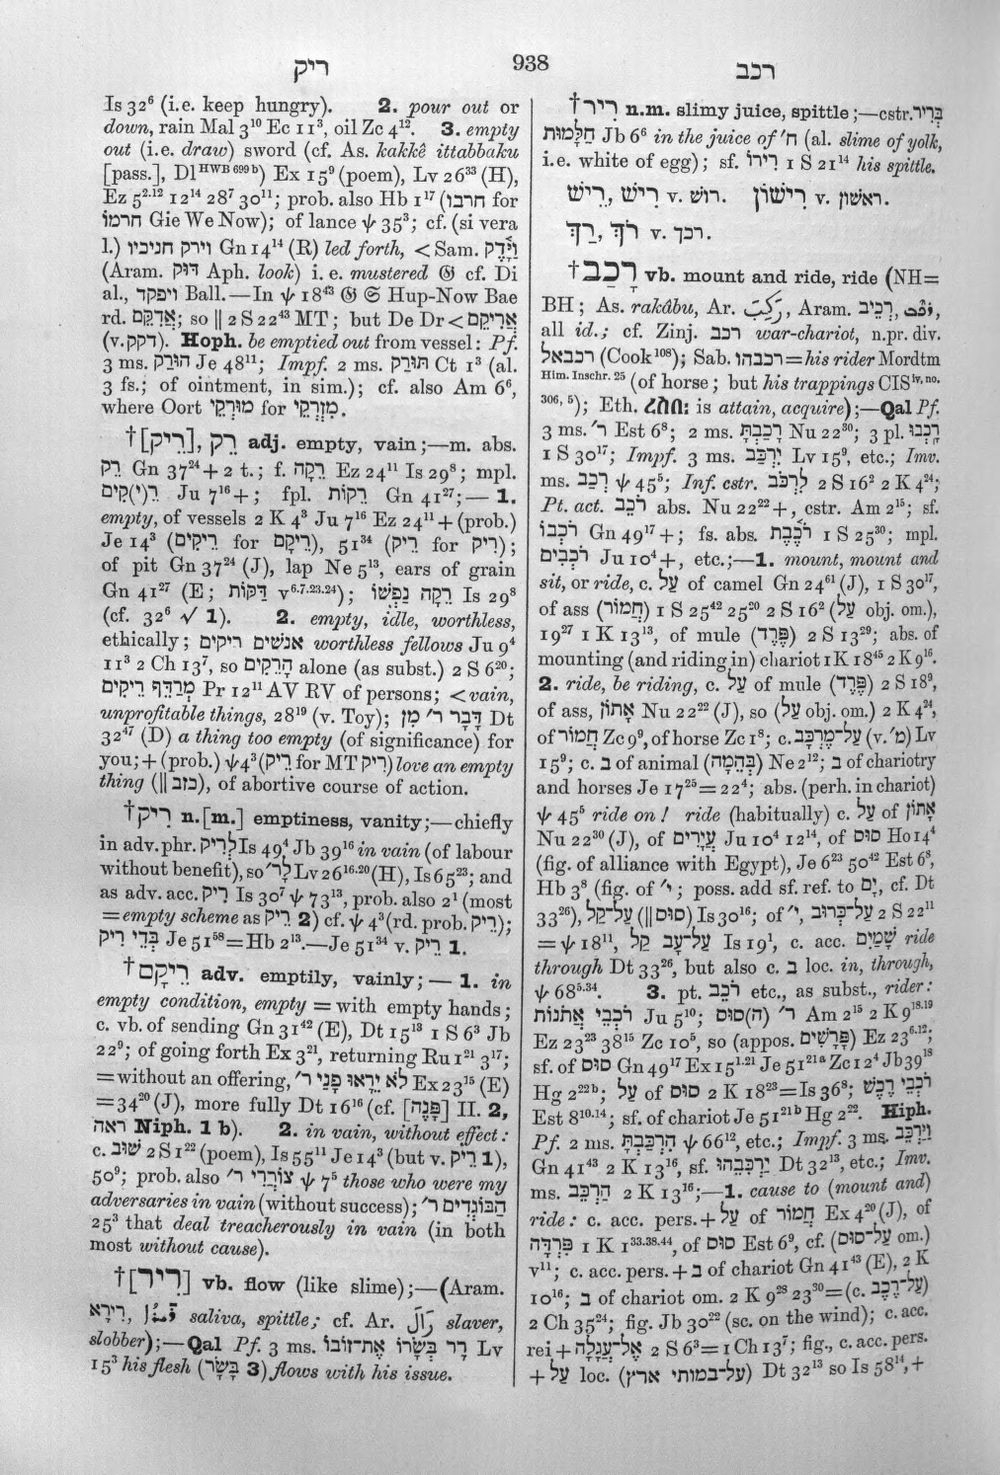 ריק
938
רכב
Is 32⁶ (i.e. keep hungry). 2. pour out or
down, rain Mal 3¹⁰ Ec 11³, oil Zc 4¹². 3. empty
out (i.e. draw) sword (cf. As. kakkê ittabbaku
[pass.], Dl HWB 699 b) Ex 15⁹ (poem), Lv 26³³ (H),
Ez 5².¹² 12¹⁴ 28⁷ 30¹¹; prob. also Hb 1¹⁷ (חרבו for
חרמו Gie We Now); of lance ψ 35³; cf. (si vera
l.) וירק חניכיו Gn 14¹⁴ (R) led forth, < Sam. וַיָּדֶק
(Aram. דּוּק Aph. look) i. e. mustered 𝔊 cf. Di
al., ויפקד Ball.—In ψ 18⁴³ 𝔊 𝔖 Hup-Now Bae
rd. אֲדִקֵּם; so ‖ 2 S 22⁴³ MT; but De Dr < אֲרִיקֵם
(v. דקק). Hoph. be emptied out from vessel: Pf.
3 ms. הוּרַק Je 48¹¹; Impf. 2 ms. תּוּרַק Ct 1³ (al.
3 fs.; of ointment, in sim.); cf. also Am 6⁶,
where Oort מוּרְקֵי for מִזְרְקֵי.
†[רֵיק], רֵק adj. empty, vain;—m. abs.
רֵק Gn 37²⁴ + 2 t.; f. רֵקָה Ez 24¹¹ Is 29⁸; mpl.
רֵ(י)קִים Ju 7¹⁶ +; fpl. רֵקוֹת Gn 41²⁷;—1.
empty, of vessels 2 K 4³ Ju 7¹⁶ Ez 24¹¹ + (prob.)
Je 14³ (רֵיקִים for רֵיקָם), 51³⁴ (רֵיק for רִיק);
of pit Gn 37²⁴ (J), lap Ne 5¹³, ears of grain
Gn 41²⁷ (E; דַּקּוֹת v⁶.⁷.²³.²⁴); רֵקָה נַפְשׁוֹ Is 29⁸
(cf. 32⁶ √ 1). 2. empty, idle, worthless,
ethically; אנשׁים ריקים worthless fellows Ju 9⁴
11³ 2 Ch 13⁷, so הָרֵקִים alone (as subst.) 2 S 6²⁰;
מְרַדֵּף רֵיקִים Pr 12¹¹ AV RV of persons; < vain,
unprofitable things, 28¹⁹ (v. Toy); דָּבָר ר׳ מִן Dt
32⁴⁷ (D) a thing too empty (of significance) for
you; + (prob.) ψ 4³ (רֵיק for MT רִיק) love an empty
thing (‖ כזב), of abortive course of action.
†רִיק n.[m.] emptiness, vanity;—chiefly
in adv. phr. לְרִיק Is 49⁴ Jb 39¹⁶ in vain (of labour
without benefit), so לָר׳ Lv 26¹⁶.²⁰ (H), Is 65²³; and
as adv. acc. רִיק Is 30⁷ ψ 73¹³, prob. also 2¹ (most
= empty scheme as רֵיק 2) cf. ψ 4³ (rd. prob. רֵיק);
בְּדֵי רִיק Je 51⁵⁸ = Hb 2¹³.—Je 51³⁴ v. רֵיק 1.
†רֵיקָם adv. emptily, vainly;—1. in
empty condition, empty = with empty hands;
c. vb. of sending Gn 31⁴² (E), Dt 15¹³ 1 S 6³ Jb
22⁹; of going forth Ex 3²¹, returning Ru 1²¹ 3¹⁷;
= without an offering, לֹא יֵרָאוּ פָנַי ר׳ Ex 23¹⁵ (E)
= 34²⁰ (J), more fully Dt 16¹⁶ (cf. [פָּנֶה] II. 2,
ראה Niph. 1 b). 2. in vain, without effect:
c. שׁוּב 2 S 1²² (poem), Is 55¹¹ Je 14³ (but v. רֵיק 1),
50⁹; prob. also צוֹרְרַי ר׳ ψ 7⁵ those who were my
adversaries in vain (without success); הַבּוֹגְדִים ר׳
25³ that deal treacherously in vain (in both
most without cause).
†[רִיר] vb. flow (like slime);—(Aram.
רִירָא, saliva, spittle; cf. Ar. slaver,
slobber);—Qal Pf. 3 ms. רָר בְּשָׂרוֹ אֶת־זוֹבוֹ Lv
15³ his flesh (בָּשָׂר 3) flows with his issue.
†רִיר n.m. slimy juice, spittle;—cstr. בְּרִיר
חַלָּמוּת Jb 6⁶ in the juice of ח׳ (al. slime of yolk,
i.e. white of egg); sf. רִירוֹ 1 S 21¹⁴ his spittle.
רֵישׁ, רִישׁ v. רושׁ. רִישׁוֹן v. ראשׁון.
רַךְ, רֹךְ v. רכך.
†רָכַב vb. mount and ride, ride (NH =
BH; As. rakâbu, Ar. رَكِبَ, Aram. רְכֵיב,
all id.; cf. Zinj. רכב war-chariot, n.pr. div.
רכבאל (Cook¹⁰⁸); Sab. רכבהו = his rider Mordtm
Him. Inschr. 25 (of horse; but his trappings CIS iv, no.
306, 5); Eth. is attain, acquire);—Qal Pf.
3 ms. ר׳ Est 6⁸; 2 ms. רָכַבְתָּ Nu 22³⁰; 3 pl. רָכְבוּ
1 S 30¹⁷; Impf. 3 ms. יִרְכַּב Lv 15⁹, etc.; Imv.
ms. רְכַב ψ 45⁵; Inf. cstr. לִרְכֹּב 2 S 16² 2 K 4²⁴;
Pt. act. רֹכֵב abs. Nu 22²² +, cstr. Am 2¹⁵; sf.
רֹכְבוֹ Gn 49¹⁷ +; fs. abs. רֹכֶבֶת 1 S 25²⁰; mpl.
רֹכְבִים Ju 10⁴ +, etc.;—1. mount, mount and
sit, or ride, c. עַל of camel Gn 24⁶¹ (J), 1 S 30¹⁷,
of ass (חֲמוֹר) 1 S 25⁴² 25²⁰ 2 S 16² (עַל obj. om.),
19²⁷ 1 K 13¹³, of mule (פֶּרֶד) 2 S 13²⁹; abs. of
mounting (and riding in) chariot 1 K 18⁴⁵ 2 K 9¹⁶.
2. ride, be riding, c. עַל of mule (פֶּרֶד) 2 S 18⁹,
of ass, אָתוֹן Nu 22²² (J), so (עַל obj. om.) 2 K 4²⁴,
of חֲמוֹר Zc 9⁹, of horse Zc 1⁸; c. עַל־מֶרְכָּב (v. מ׳) Lv
15⁹; c. ב of animal (בְּהֵמָה) Ne 2¹²; ב of chariotry
and horses Je 17²⁵ = 22⁴; abs. (perh. in chariot)
ψ 45⁵ ride on! ride (habitually) c. עַל of אָתוֹן
Nu 22³⁰ (J), of עֲיָרִים Ju 10⁴ 12¹⁴, of סוּס Ho 14⁴
(fig. of alliance with Egypt), Je 6²³ 50⁴² Est 6⁸,
Hb 3⁸ (fig. of י׳; poss. add sf. ref. to יָם, cf. Dt
33²⁶), עַל־קַל (‖ סוּס) Is 30¹⁶; of י׳, עַל־כְּרוּב 2 S 22¹¹
= ψ 18¹¹, עַל־עָב קַל Is 19¹, c. acc. שָׁמַיִם ride
through Dt 33²⁶, but also c. ב loc. in, through,
ψ 68⁵.³⁴. 3. pt. רֹכֵב etc., as subst., rider:
רֹכְבֵי אֲתֹנוֹת Ju 5¹⁰; ר׳ (ה)סוּס Am 2¹⁵ 2 K 9¹⁸.¹⁹
Ez 23²³ 38¹⁵ Zc 10⁵, so (appos. פָּרָשִׁים) Ez 23⁶.¹²;
sf. of סוּס Gn 49¹⁷ Ex 15¹.²¹ Je 51²¹ᵃ Zc 12⁴ Jb 39¹⁸
Hg 2²²ᵇ; עַל of סוּס 2 K 18²³ = Is 36⁸; רֹכְבֵי רֶכֶשׁ
Est 8¹⁰.¹⁴; sf. of chariot Je 51²¹ᵇ Hg 2²². Hiph.
Pf. 2 ms. הִרְכַּבְתָּ ψ 66¹², etc.; Impf. 3 ms. וַיַּרְכֵּב
Gn 41⁴³ 2 K 13¹⁶, sf. יַרְכִּבֵהוּ Dt 32¹³, etc.; Imv.
ms. הַרְכֵּב 2 K 13¹⁶;—1. cause to (mount and)
ride: c. acc. pers. + עַל of חֲמוֹר Ex 4²⁰ (J), of
פִּרְדָּה 1 K 1³³.³⁸.⁴⁴, of סוּס Est 6⁹, cf. (עַל־סוּס om.)
v¹¹; c. acc. pers. + ב of chariot Gn 41⁴³ (E), 2 K
10¹⁶; ב of chariot om. 2 K 9²⁸ 23³⁰ = (c. עַל־רֶכֶב)
2 Ch 35²⁴; fig. Jb 30²² (sc. on the wind); c. acc.
rei + אֶל־עֲגָלָה 2 S 6³ = 1 Ch 13⁷; fig., c. acc. pers.
+ עַל loc. (על־במותי ארץ) Dt 32¹³ so Is 58¹⁴, +